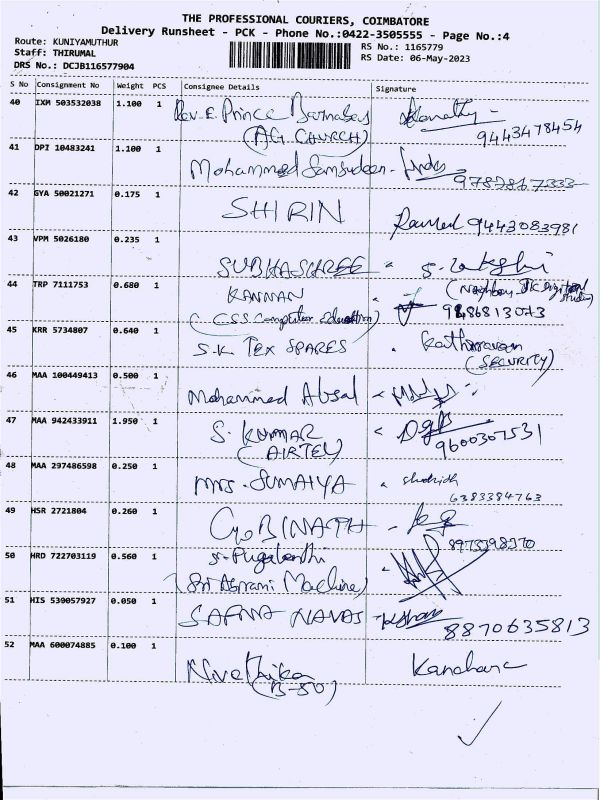 THE PROFESSIONAL COURIERS, COIMBATORE
Delivery Runsheet - PCK - Phone No.:0422-3505555 - Page No.:4
Route: KUNIYAMUTHUR
RS No.: 1165779
Staff: THIRUMAL
RS Date: 06-May-2023
DRS No.: DCJB116577904
S No Consignment No Weight PCS Consignee Details Signature
40 IXM 503532038 1.100 1 Rev. E. Prince Barnabas
(A.G. CHURCH) 9443478454
41 DPI 10483241 1.100 1 Mohammed Samsudeen -
42 GYA 50021271 0.175 1 SHIRIN 9443083981
43 VPM 5026180 0.235 1 SUBHASHREE
44 TRP 7111753 0.680 1 KANNAN
(CSS Computer Education)
45 KRR 5734807 0.640 1 S.K. TEX SPARES Kathiravan
(SECURITY)
46 MAA 100449413 0.500 1 Mohammed Absal
47 MAA 942433911 1.950 1 S. KUMAR
(AIRTEL) 9600307531
48 MAA 297486598 0.250 1 Mrs. SUMAIYA
6383384763
49 HSR 2721804 0.260 1 GOBINATH -
8973398370
50 HRD 722703119 0.560 1 S. Pugalenthi
(Sri Abirami Machine)
51 HIS 539057927 0.050 1 SAFNA NAVAS
8870635813
52 MAA 600074885 0.100 1 Nivethika
(B-50)